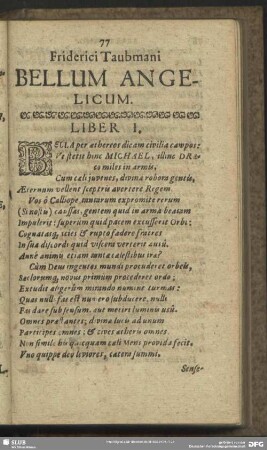 77
Friderici Taubmani
BELLUM ANGE-
LICUM.
LIBER I.
BELLA per æthereos dicam civilia campos:
Ut stetit hinc MICHAEL, illinc DRA-
co miles in armis;
Cum cæli juvenes, divina robora gentis,
Æternum vellent sceptris avertere Regem.
Vos ô Calliope, mutarum expromite rerum
(Si nostis) caussas; gentem quid in arma beatam
Impulerit: superûm quid pacem excusserit Orbi:
Cognatasq; acies & rupto fœdere fratres
In sua discordi quid viscera verterit ausu.
Anne animis etiam tanta cælestibus ira?
Cùm Deus ingentes mundi procuderet orbeis,
Seclorumq; novus primum procederet ordo;
Extudit angelûm mirando numine turmas:
Quas nulli fas est numero subducere, nulli
Fas dare sub sensum, aut metiri luminis usu.
Omnes præstantes; divinæ lucis ad unum
Participes omnes: & cives ætheris omnes.
Non simile his quicquam cæli Mens provida fecit.
Uno quippe deo leviores, cætera summi.
Sense-
SLUB